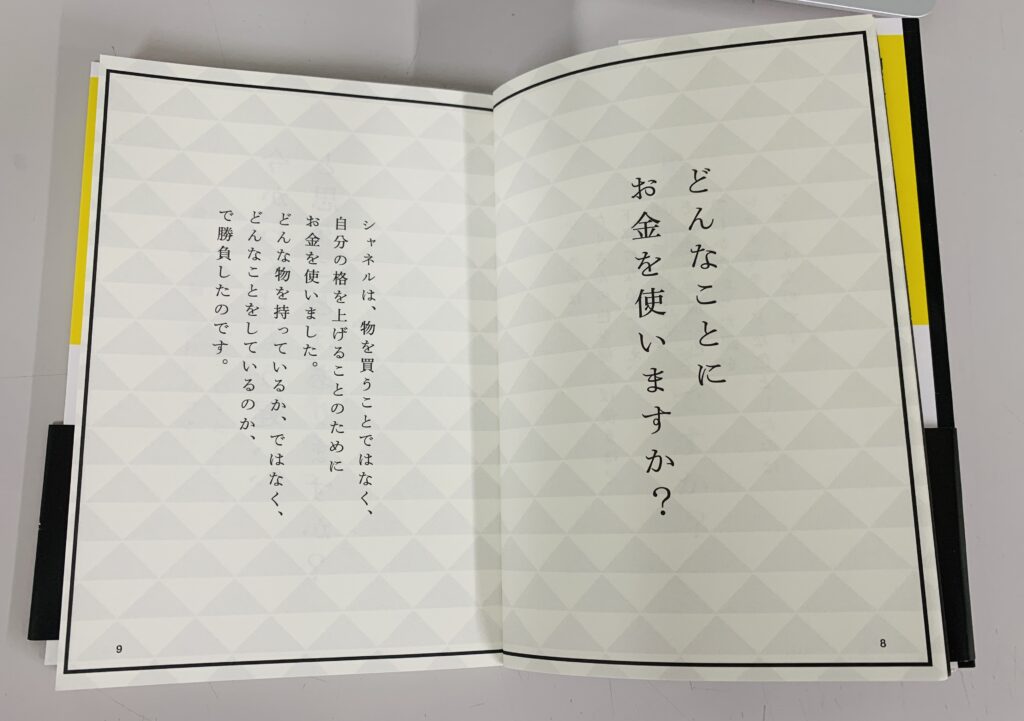 どんなことに
お金を使いますか？
8
シャネルは、物を買うことではなく、
自分の格を上げることのために
お金を使いました。
どんな物を持っているか、ではなく、
どんなことをしているのか、
で勝負したのです。
9